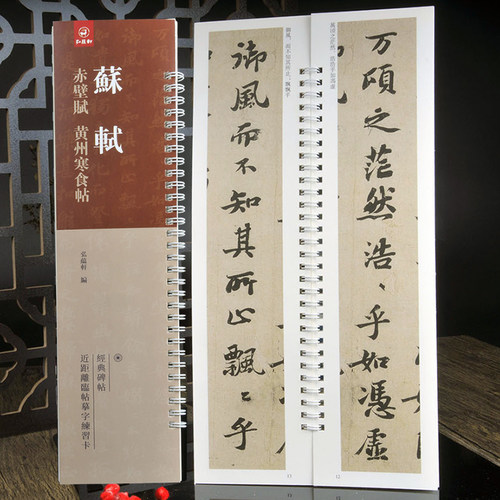 蘇軾
赤壁賦 黄州寒食帖
弘蘊軒 編
經典碑帖
近距離臨帖摹字練習卡
万頃之茫然浩〻乎如馮虛
御風而不知其所止飄〻乎